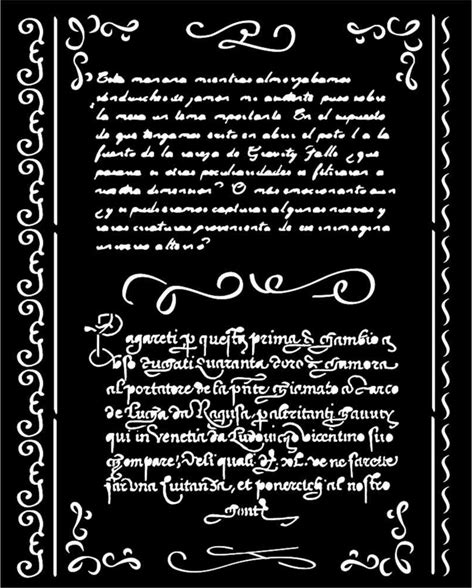 Esta manana mientras almorzabamos
sandwiches de jamon mi asistente puso sobre
la mesa un tema importante En el supuesto
de que tengamos exito en abrir el portal a la
fuente de la rareza de Gravity Falls ¿que
pasaria si otras peculiaridades se filtraran a
nuestra dimension? O mas emocionante aun
¿y si pudieramos capturar algunas nuevas y
raras criaturas proveniente de ese inimagina
universo alterno?
Pagareti p questa prima di chambio
Ducati quaranta doro di chamera
al portatore de la pnte chiamato Marco
de Lucha da Ragusa, p altretanti havuti
qui in Venetia da Ludovico vicentino suo
chompare; Deli quali ve ne farette
far una quitanza, et ponercich al nostro